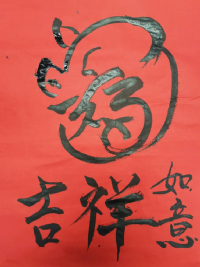 福
吉祥如意